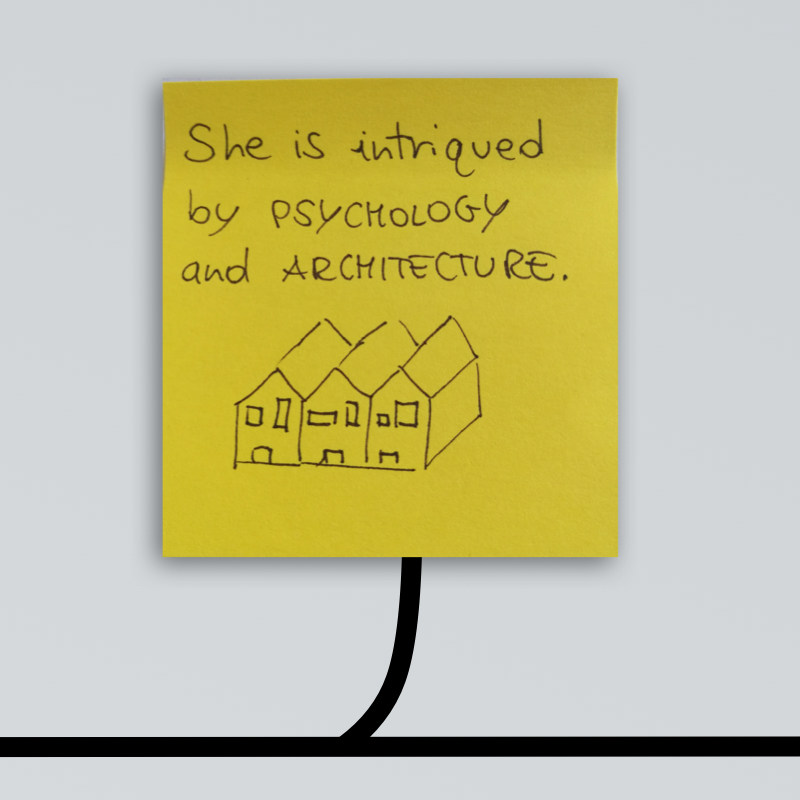 She is intriqued
by PSYCHOLOGY
and ARCHITECTURE.